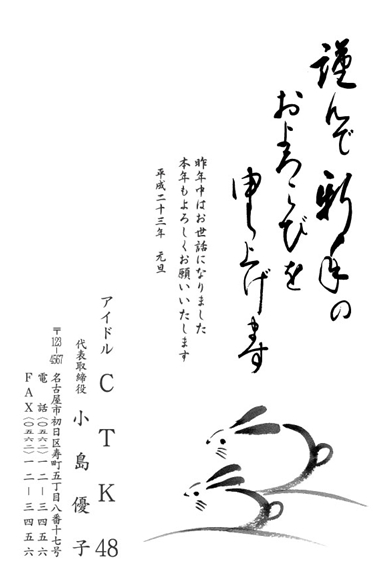 謹んで新年の
およろこびを
申し上げます
昨年中はお世話になりました
本年もよろしくお願いいたします
平成二十三年 元旦
アイドル CTK48
代表取締役 小島優子
〒123-4567 名古屋市初日区寿町五丁目八番十七号
電話(〇五六二)一二ー三四五六
FAX(〇五六二)一二ー三四五六